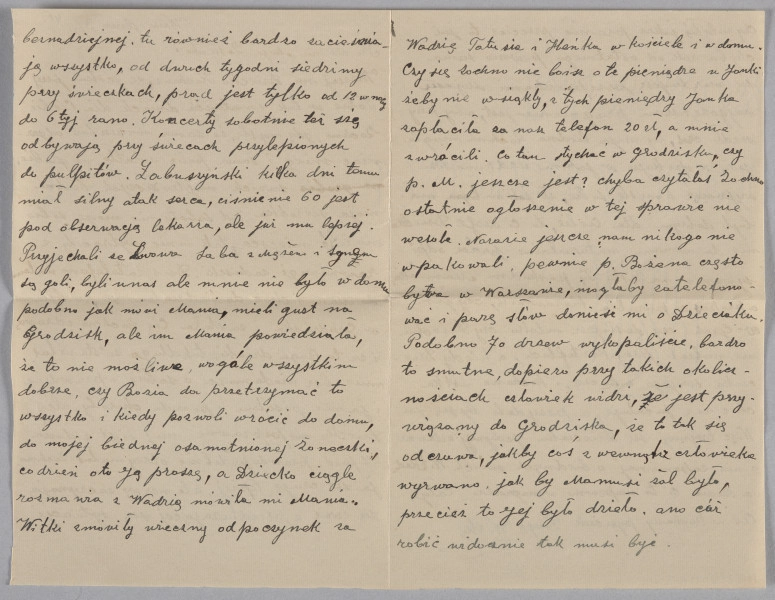 beznadziejnej. tu również bardzo zacieśnia-
ją wszystko, od dwuch tygodni siedzimy
przy świeczkach, prąd jest tylko od 12 w nocy
do 6 tyj rano. Koncerty sobotnie też się
odbywają przy świecach przylepionych
do pulpitów. Zabuszyński kilka dni temu
miał silny atak serca, ciśnienie 60 jest
pod obserwacją lekarza, ale już ma lepiej.
Przyjechali ze Lwowa Laba z mężem i synem
są goli, byli u nas ale mnie nie było w domu
podobno jak mówi Mania, mieli gust na
Grodzisk, ale im Mania powiedziała,
że to nie możliwe, wogóle wszystkim
dobrze, czy Bozia da przetrzymać to
wszystko i kiedy pozwoli wrócić do domu,
do mojej biednej osamotnionej Żoneczki,
codzień oto Ją proszę, a Dziecko ciągle
rozmawia z Wadzią mówiła mi Mania.
Witki zmówiły wieczny odpoczynek za
Wadzię Tatusie i Heńka w kościele i w domu.
Czy się Zochno nie boisz o te pieniądze u Janki
żeby nie wsiąkły, z tych pieniędzy Janka
zapłaciła za nasz telefon 20 zł, a mnie
zwrócili. Co tam słychać w Grodzisku, czy
p. M. jeszcze jest? chyba czytałaś Zochno
ostatnie ogłoszenie w tej sprawie nie
wesołe. Narazie jeszcze nam nikogo nie
wpakowali, pewnie p. Bożena często
bywa w Warszawie, mogłaby zatelefono-
wać i parę słów donieść mi o Dzieciaku.
Podobno 70 drzew wykopaliście, bardzo
to smutne, dopiero przy takich okolicz-
nościach człowiek widzi, że jest przy-
wiązany do Grodziska, że to tak się
odczuwa, jakby coś z wewnątrz człowieka
wyrwano. jak by Mamusi żal było,
przecież to Jej było dzieło. ano cóż
robić widocznie tak musi być.